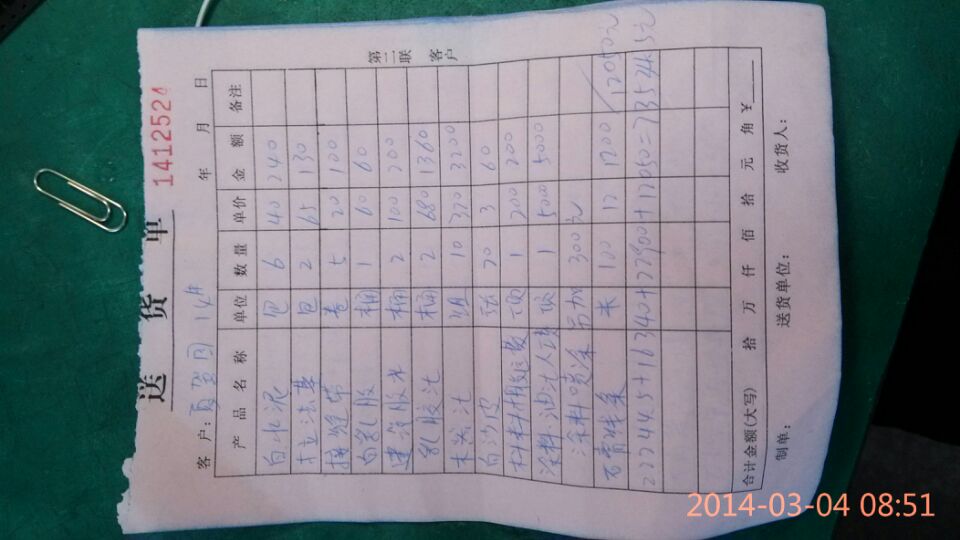 送货单
1412524
客户:
年 月 日
产品名称 单位 数量 单价 金额 备注
白水泥 包 6 40 240
包 2 65 130
接缝带 卷 5 20 100
白乳胶 桶 1 60 60
建筑胶水 桶 2 100 200
乳胶漆 桶 2 680 1360
木器漆 组 10 320 3200
白沙皮 张 20 3 60
材料搬运费 1 200 200
涂料、油漆人工 1 5000 5000
涂料喷涂 另加 300元
石膏线条 米 100 12 1200 12050元
合计金额(大写) 拾 万 仟 佰 拾 元 角 ¥
制单: 送货单位: 收货人:
第二联 客户
2014-03-04 08:51